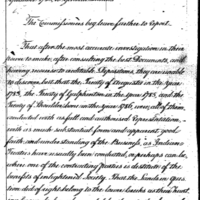 The Commissioners beg leave further to Report.
That after the most accurate investigation in their
power to make, after consulting the best Documents, and
having recourse to credible Depositions, they are unable
to discover but that the Treaty of Augusta in the year
1783, the Treaty of Galphinton in the year 1785, and the
Treaty of Shoulderbone in the year 1786, were all of them
conducted with as full and authorized Representation,
with as much substantial form and apparent good
faith and understanding of the business, as Indian
Treaties have usually been conducted, or perhaps can be,
where one of the contracting Parties is destitute of the
benefits of enlightened Society. That the lands in Ques-
tion did of right belong to the lower Creeks as their